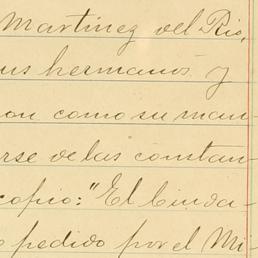 Martinez del Rio,
us hermanos y
on como su man-
rse de las constan-
copio: "El Ciuda-
pedido por el Mi-